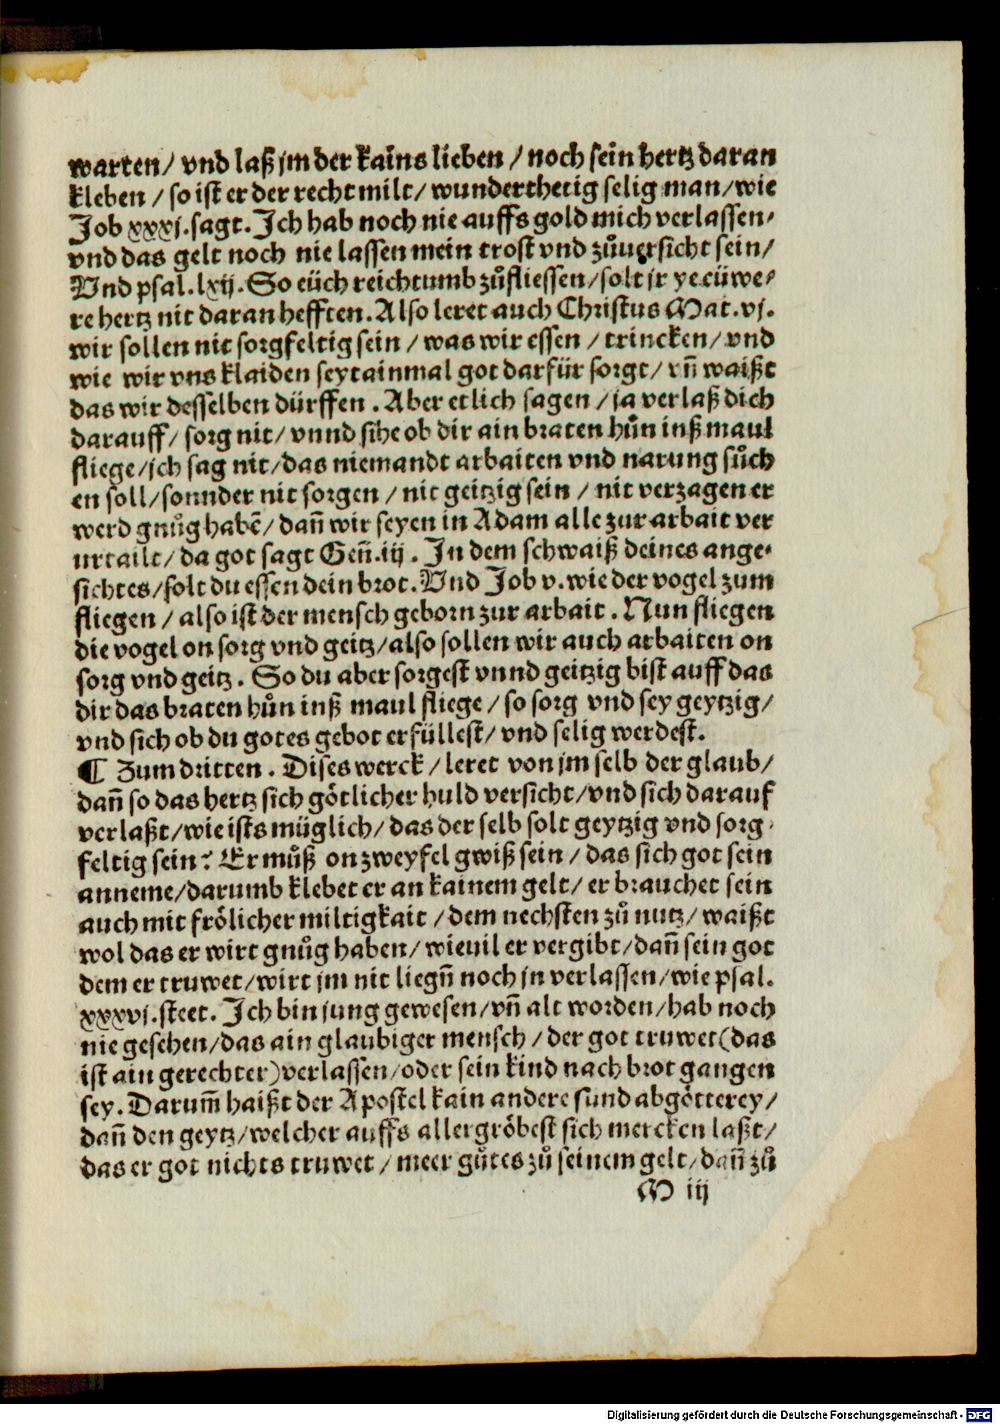 warten/ vnd laß jm der kains lieben / noch sein hertz daran
kleben / so ist er der recht milt/ wunderthetig selig man/ wie
Job xxxj. sagt. Ich hab noch nie auffs gold mich verlassen⸗
vnd das gelt noch nie lassen mein trost vnd zůuersicht sein/
Vnd psal. lxij. So eüch reichtumb zůfliessen/ solt jr ye eüwe⸗
re hertz nit daran hefften. Also leret auch Christus Mat. vj.
wir sollen nit sorgfeltig sein / was wir essen / trincken/ vnd
wie wir vns klaiden seytainmal got darfür sorgt/ vñ waißt
das wir desselben dürffen . Aber etlich sagen / ja verlaß dich
darauff/ sorg nit/ vnnd sihe ob dir ain braten hůn inß maul
fliege/ jch sag nit/ das niemandt arbaiten vnd narung sůch
en soll/ sonnder nit sorgen / nit geitzig sein / nit verzagen er
werd gnůg habẽ/ dañ wir seyen in Adam alle zur arbait ver
urtailt/ da got sagt Geñ. iij . In dem schwaiß deines ange⸗
sichtes/ solt du essen dein brot. Vnd Job v. wie der vogel zum
fliegen / also ist der mensch geborn zur arbait . Nun fliegen
die vogel on sorg vnd geitz/ also sollen wir auch arbaiten on
sorg vnd geitz . So du aber sorgest vnnd geitzig bist auff das
dir das braten hůn inß maul fliege / so sorg vnd sey geytzig/
vnd sich ob du gotes gebot erfüllest/ vnd selig werdest.
¶ Zum dritten . Dises werck / leret von jm selb der glaub/
dañ so das hertz sich götlicher huld versicht/ vnd sich darauf
verlaßt/ wie ists müglich/ das der selb solt geytzig vnd sorg⸗
feltig sein? Er můß on zweyfel gwiß sein / das sich got sein
anneme/ darumb klebet er an kainem gelt/ er brauchet sein
auch mit frölicher miltigkait / dem nechsten zů nutz/ waißt
wol das er wirt gnůg haben/ wieuil er vergibt/ dañ sein got
dem er truwet/ wirt jm nit liegñ noch jn verlassen/ wie psal.
xxxvj. steet. Ich bin jung gewesen/ vñ alt worden/ hab noch
nie gesehen/ das ain glaubiger mensch / der got truwet (das
ist ain gerechter) verlassen/ oder sein kind nach brot gangen
sey. Darum̃ haißt der Apostel kain andere sund abgötterey/
dañ den geytz/ welcher auffs allergröbest sich mercken laßt/
das er got nichts truwet / meer gůtes zů seinem gelt/ dañ zů
M iij
Digitalisierung gefördert durch die Deutsche Forschungsgemeinschaft - DFG